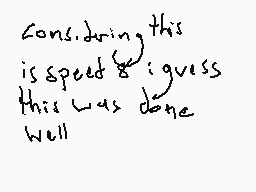 considering this
is speed 8 i guess
this was done
well